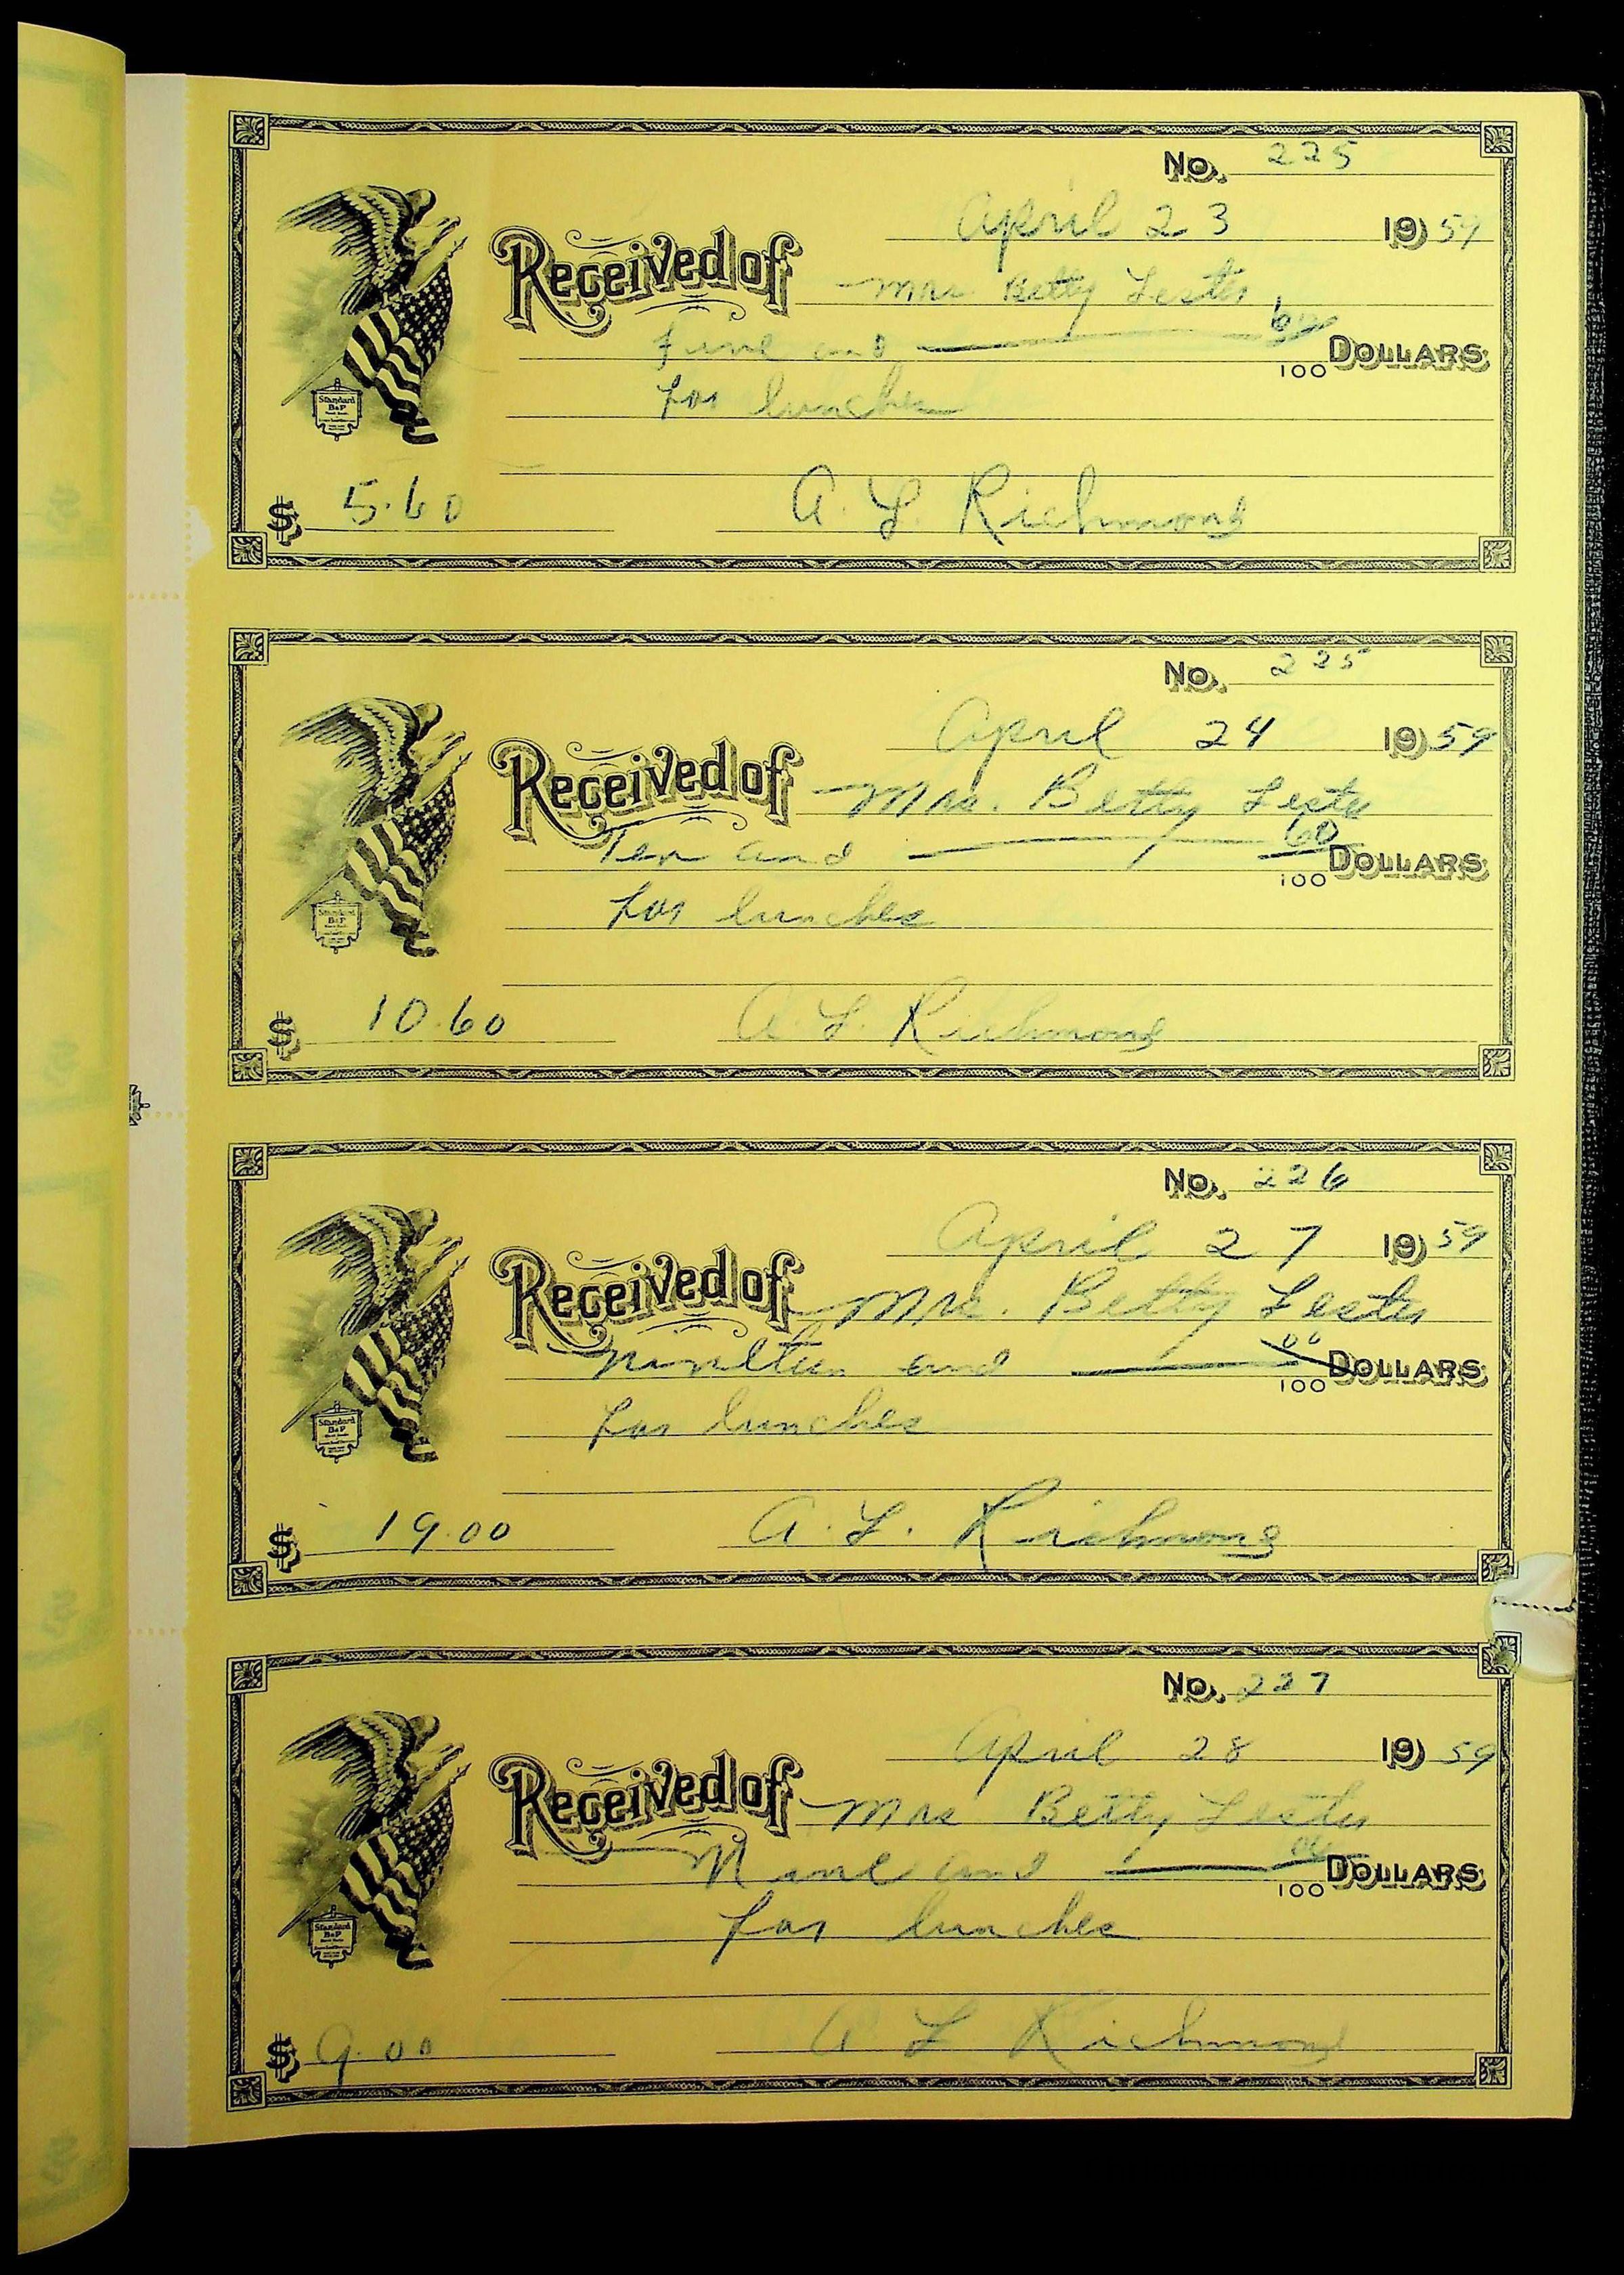 No. 225
April 23 1959
Received of Mrs Betty Lester
Five and 60
100 DOLLARS
for lunches
Standard
B&P
$ 5.60 A. L. Richmond
No. 225
April 24 1959
Received of Mrs. Betty Lester
Ten and 60
100 DOLLARS
for lunches
Standard
B&P
$ 10.60 A. L. Richmond
No. 226
April 27 1959
Received of Mrs. Betty Lester
Nineteen and 00
100 DOLLARS
for lunches
Standard
B&P
$ 19.00 A. L. Richmond
No. 227
April 28 1959
Received of Mrs Betty Lester
Nine and 00
100 DOLLARS
for lunches
Standard
B&P
$ 9.00 A L Richmond